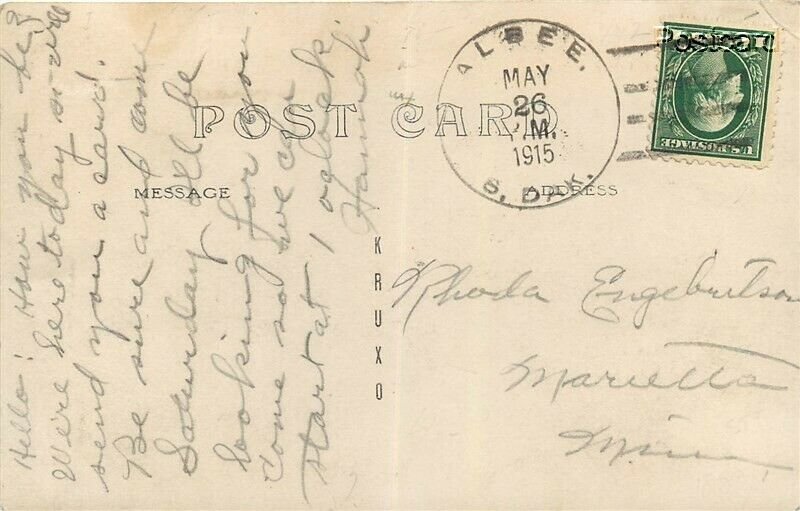 Hello! How you be?
We're here today so will
send you a card.
Be sure and come
Saturday all be
looking for you
Come so we can
start at 1 oclock.
Hannah
POST CARD
MESSAGE
ADDRESS
KRUXO
ALBEE,
MAY
26
M.
1915
S. DAK.
Postcard
U.S. POSTAGE
Rhoda Engebritson
Marietta
Minn